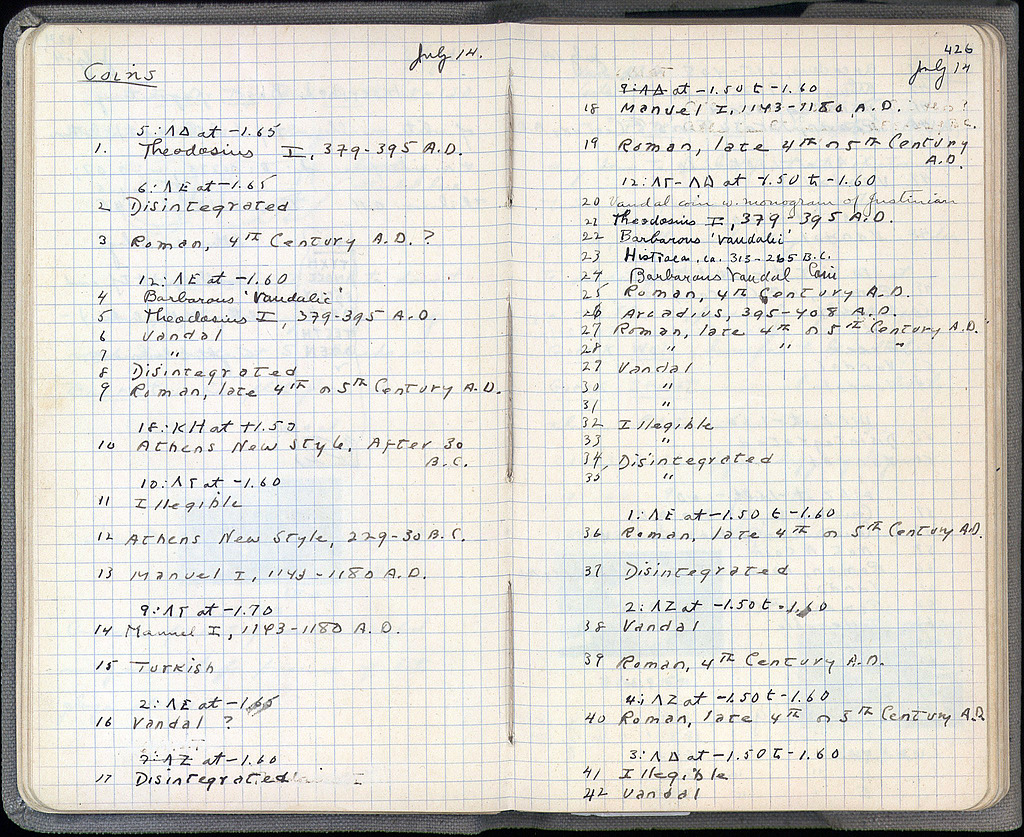 July 14.
Coins
5:ΛΔ at -1.65
1. Theodosius I, 379-395 A.D.
6:ΛE at -1.65
2 Disintegrated
3 Roman, 4TH Century A.D.?
12:ΛE at -1.60
4 Barbarous 'Vandalic'
5 Theodosius I, 379-395 A.D.
6 Vandal
7 "
8 Disintegrated
9 Roman, late 4TH or 5TH Century A.D.
18:KH at +1.50
10 Athens New Style. After 30
B.C.
10:ΛΓ at -1.60
11 Illegible
12 Athens New Style, 229-30 B.C.
13 Manuel I, 1143-1180 A.D.
9:ΛΓ at -1.70
14 Manuel I, 1143-1180 A.D.
15 Turkish
2:ΛE at -1.65
16 Vandal ?
7:ΛZ at -1.60
17 Disintegrated
426
July 14
9:ΛΔ at -1.50 to -1.60
18 Manuel I, 1143-1180, A.D.
19 Roman, late 4TH or 5TH Century
A.D.
12:ΛΓ-ΛΔ at -1.50 to -1.60
20 Vandal coin w. monogram of Justinian
21 Theodosius I, 379-395 A.D.
22 Barbarous 'Vandalic'
23 Histiaea, ca. 313-265 B.C.
24 Barbarous Vandal Coin
25 Roman, 4TH Century A.D.
26 Arcadius, 395-408 A.D.
27 Roman, late 4TH or 5TH Century A.D.
28 " " "
29 Vandal
30 "
31 "
32 Illegible
33 "
34, Disintegrated
35 "
1:ΛE at -1.50 to -1.60
36 Roman, late 4TH or 5TH Century A.D.
37 Disintegrated
2:ΛZ at -1.50 to -1.60
38 Vandal
39 Roman, 4TH Century A.D.
4:ΛZ at -1.50 to -1.60
40 Roman, late 4TH or 5TH Century A.D.
3:ΛΔ at -1.50 to -1.60
41 Illegible
42 Vandal